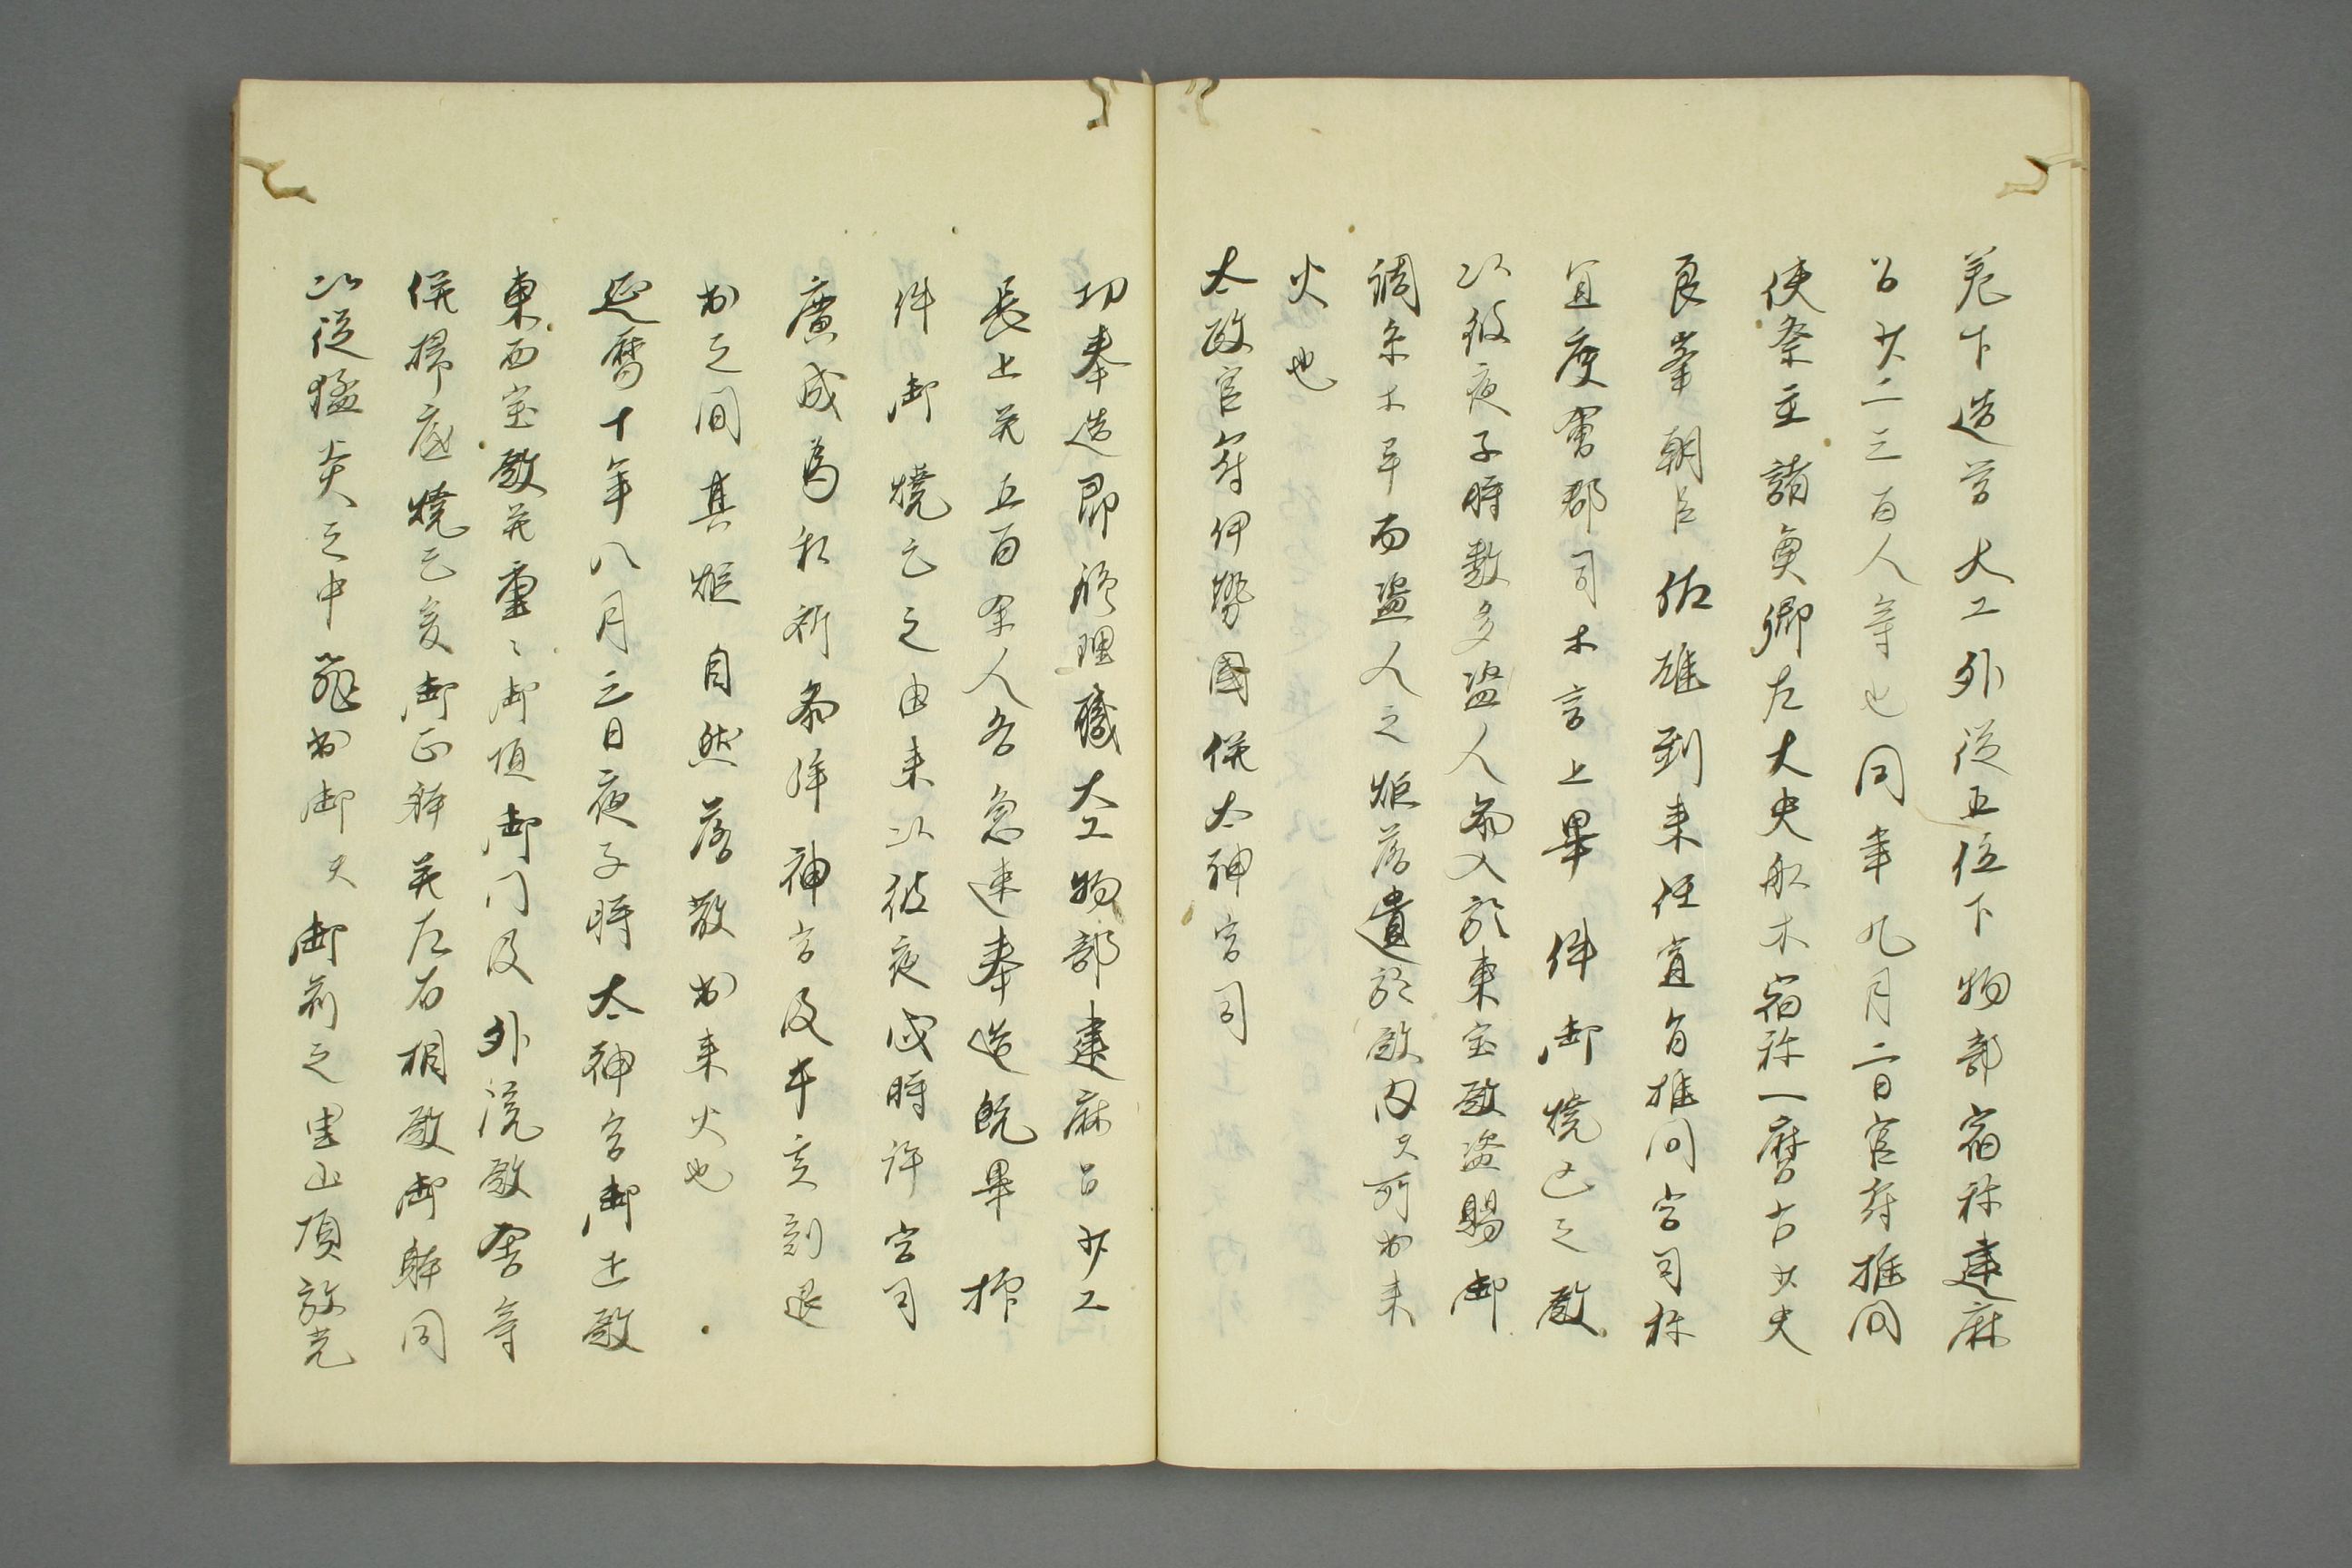 差下造宮大工外従五位下物部宿祢建麻
呂廿二三百人等也同年九月二日官府推問
使祭主諸魚卿左大史船木宿祢一麿右少史
良峯朝臣佐雄到来任宣旨推問宮司祢
宜度會郡司木言上畢件御焼亡之歟
以彼夜子時数多盗人参入於東宝殿盗賜御
調糸木早而盗人之炬落遺於殿内天所出来
火也
太政官符伊勢國併太神宮司
初奉造即修理職大工物部建麻呂少工
長上并五百余人各急速奉造既畢抑
件御焼亡之由来以彼夜戌時許宮司
廣成為私祈参拝神宮及于亥刻退
出之間其炬自然落散出来火也
延暦十年八月三日夜子時太神宮御正殿
東西宝殿并重々御垣御門及外院殿舎等
併掃底焼亡爰御正躰并左右相殿御躰同
以従猛炎之中飛出御天御前之黒山頂放光